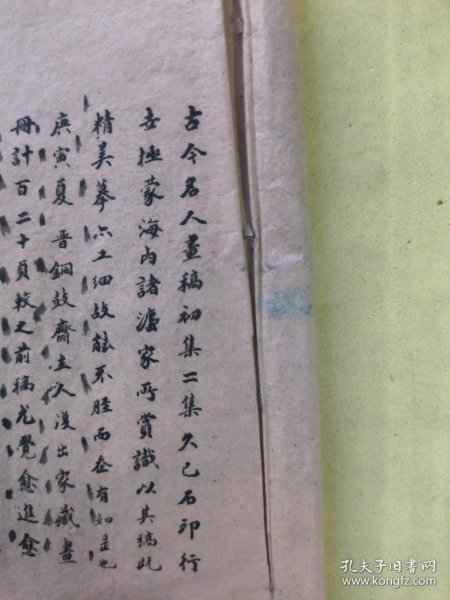 古今名人畫稿初集二集久已石印行
世極蒙海內諸濵家所賞識以其稿既
精美摹亦工細故能不脛而走有如是也
庚寅夏晋銅鼓齋主人復出家藏畫
冊計百二十頁較之前稿尤覺愈進愈
孔夫子旧书网
www.kongfz.com